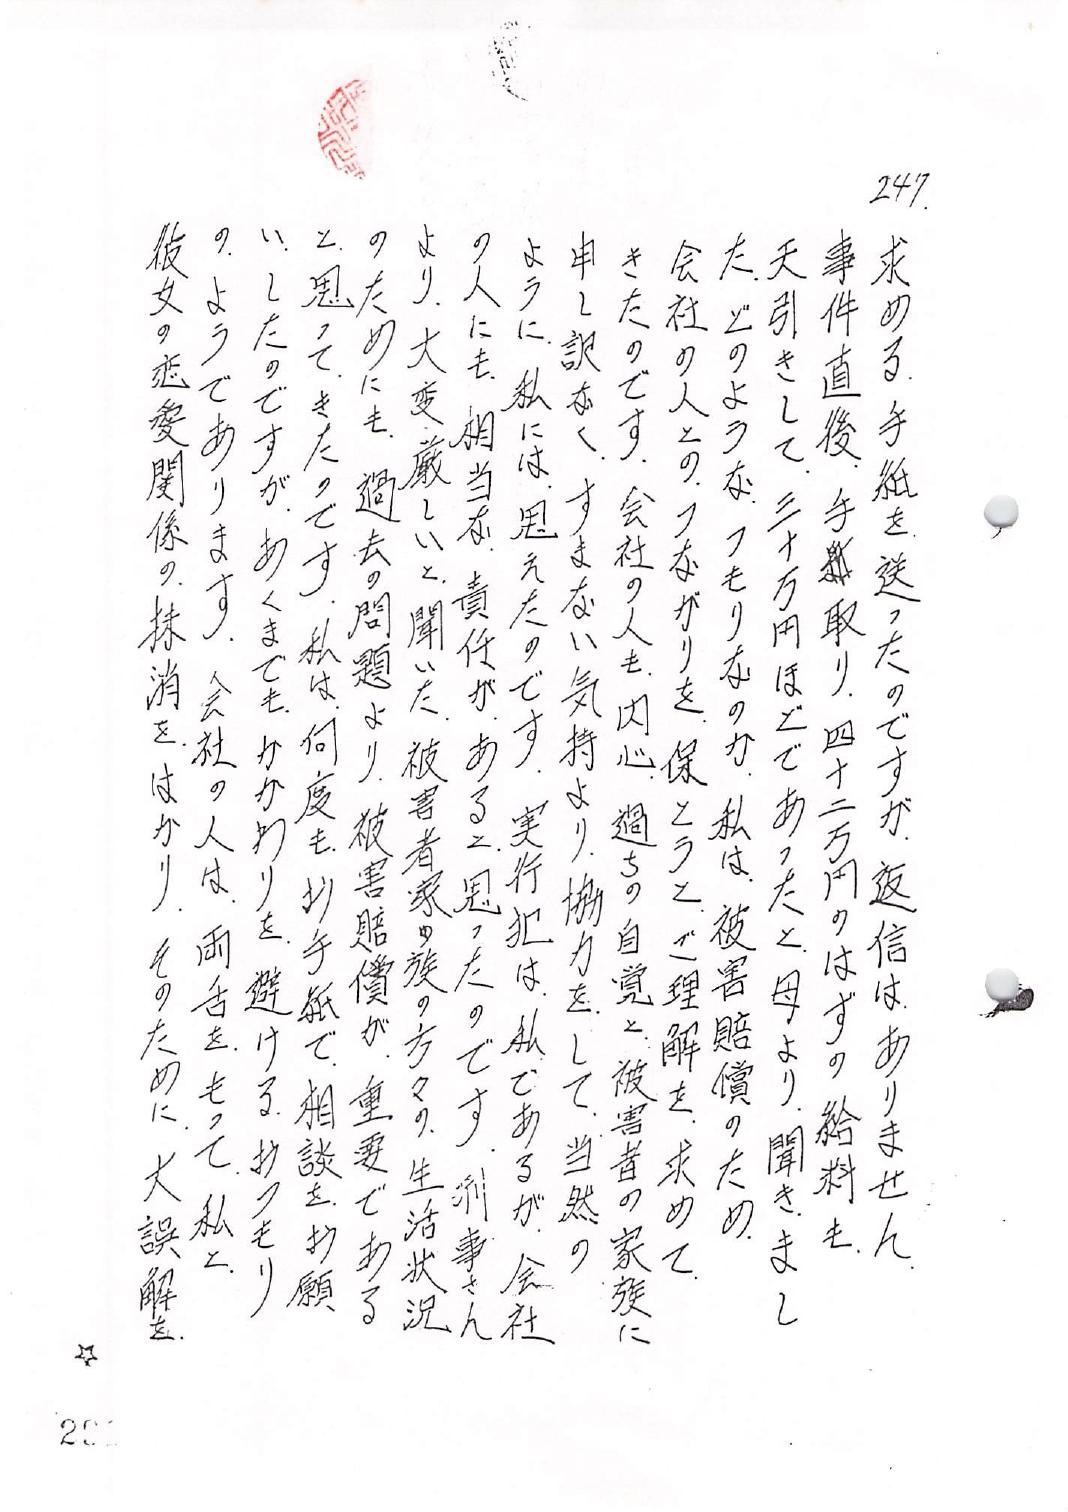 247.
求める、手紙を、送ったのですが、返信は、ありません、
事件直後、手取り、四十二万円のはずの、給料も、
天引きして、三十万円ほどであったと、母より、聞きまし
た、どのような、つもりなのか、私は、被害賠償のため、
会社の人との、つながりを、保とうと、ご理解を、求めて、
きたのです、会社の人も、内心、過ちの自覚と、被害者の家族に
申し訳なく、すまない気持より、協力をして、当然の
ように、私には、思えたのです、実行犯は、私であるが、会社
の人にも、相当な、責任が、あると、思ったのです、刑事さん
より、大変、厳しいと、聞いた、被害者家族の方々の、生活状況
のためにも、過去の問題より、被害賠償が、重要である
と、思って、きたのです、私は、何度も、お手紙で、相談を、お願
い、したのですが、あくまでも、かかわりを、避ける、おつもり
の、ようであります、会社の人は、両舌を、もって、私と、
彼女の恋愛関係の、抹消を、はかり、そのために、大誤解を、
☆